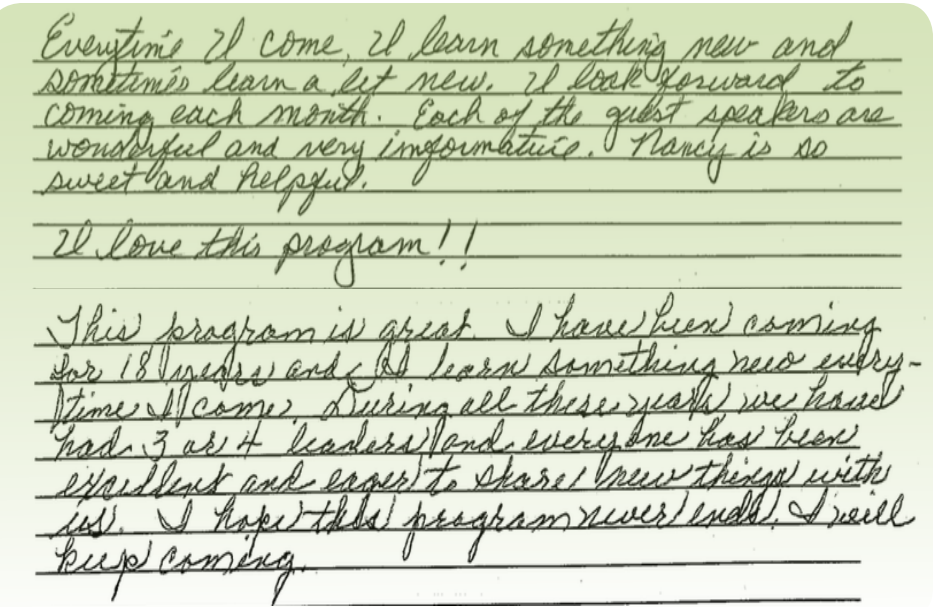 Everytime I come, I learn something new and
sometimes learn a lot new. I look forward to
coming each month. Each of the guest speakers are
wonderful and very imformative. Nancy is so
sweet and helpful.
I love this program!!
This program is great. I have been coming
for 18 years and I learn something new every-
time I come. During all these years we have
had 3 or 4 leaders and everyone has been
excellent and eager to share new things with
us. I hope this program never ends. I will
keep coming.